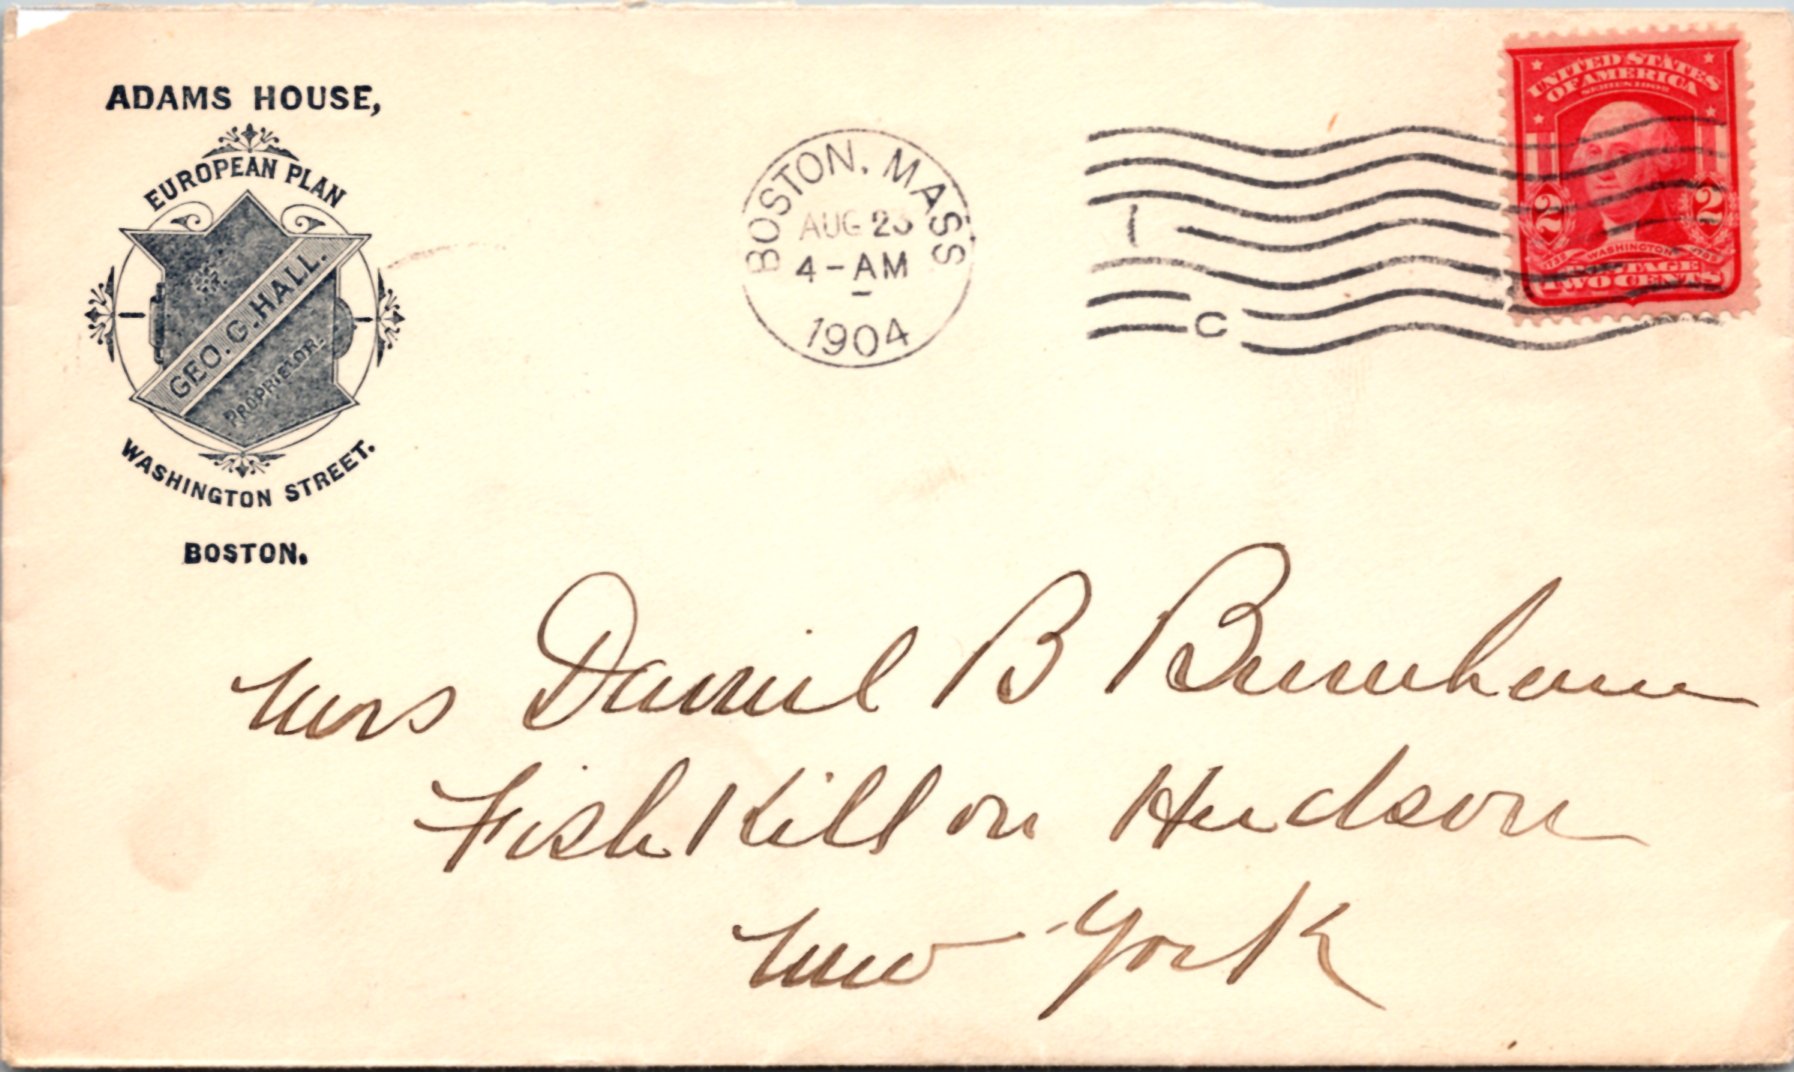 ADAMS HOUSE,
EUROPEAN PLAN
GEO. G. HALL.
PROPRIETOR.
WASHINGTON STREET.
BOSTON.
BOSTON, MASS
AUG 23
4-AM
1904
1
C
UNITED STATES
OF AMERICA
SERIES 1902
2 2
WASHINGTON
POSTAGE
TWO CENTS
Mrs Daniel B Burnham
Fish Kill on Hudson
New York